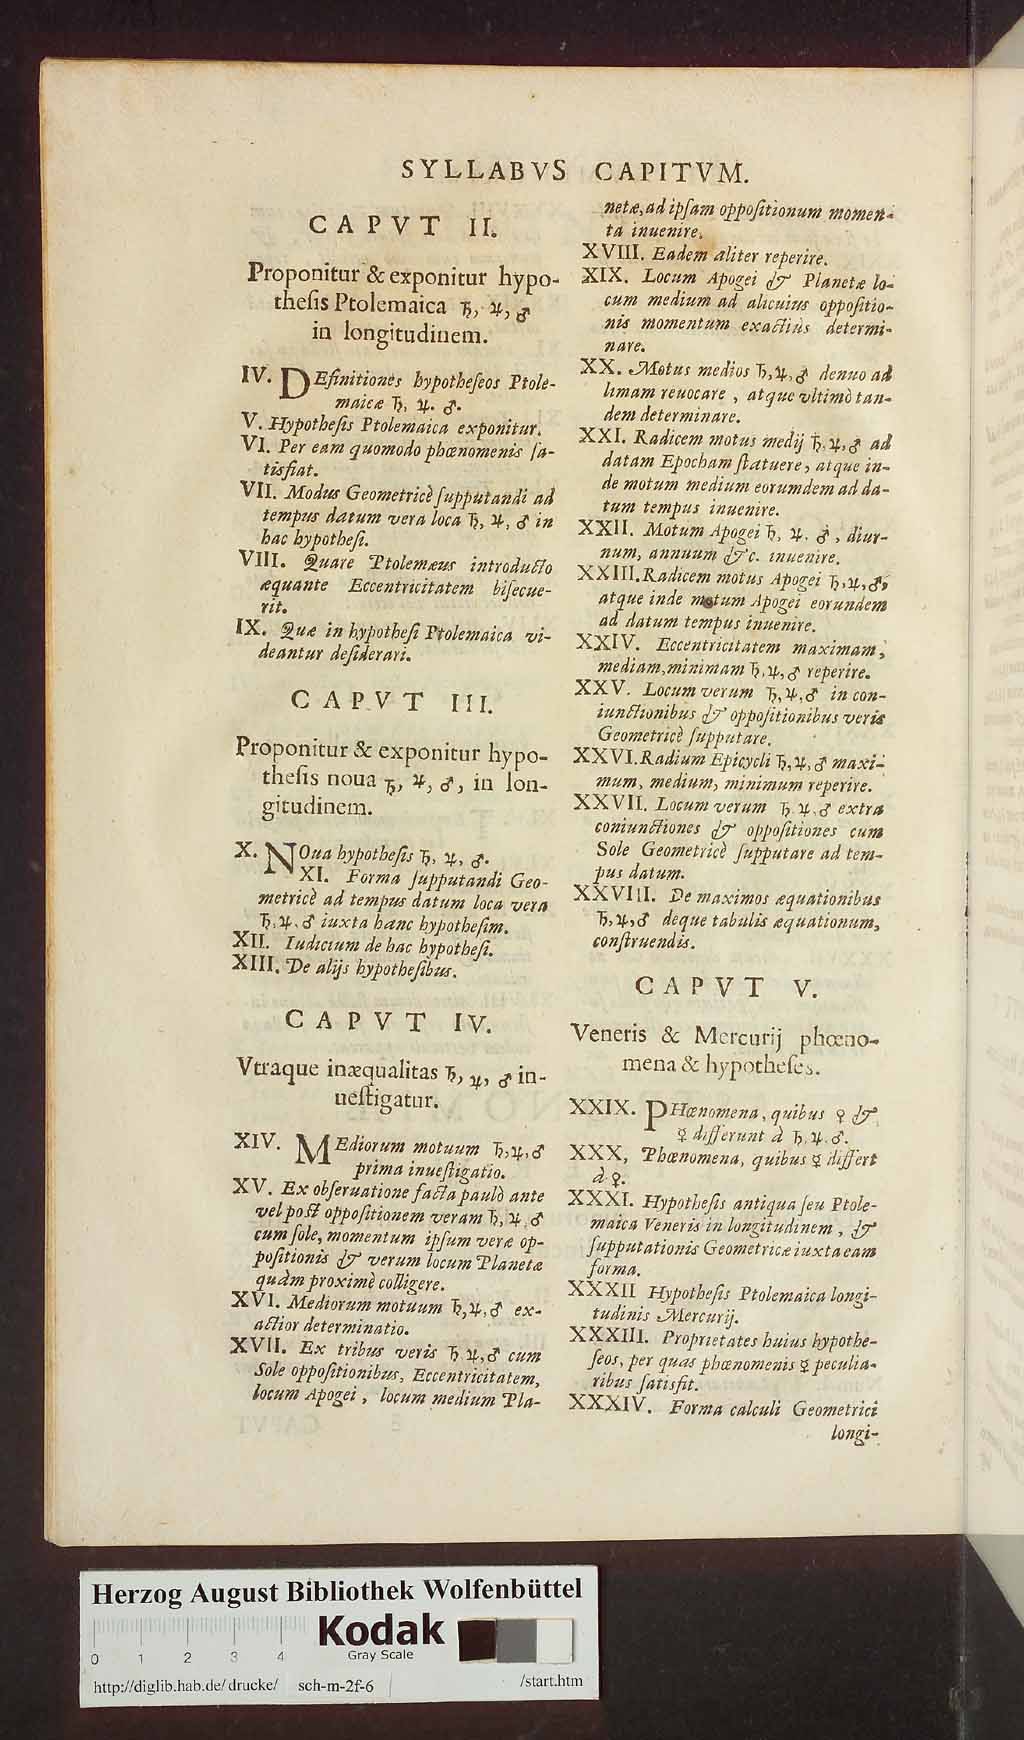 SYLLABVS CAPITVM.
CAPVT II.
Proponitur & exponitur hypo-
thesis Ptolemaica ♄, ♃, ♂
in longitudinem.
IV. DEfinitiones hypotheseos Ptole-
maicæ ♄, ♃. ♂.
V. Hypothesis Ptolemaica exponitur.
VI. Per eam quomodo phœnomenis sa-
tisfiat.
VII. Modus Geometricè supputandi ad
tempus datum vera loca ♄, ♃, ♂ in
hac hypothesi.
VIII. Quare Ptolemæus introducto
æquante Eccentricitatem bisecue-
rit.
IX. Quæ in hypothesi Ptolemaica vi-
deantur desiderari.
CAPVT III.
Proponitur & exponitur hypo-
thesis noua ♄, ♃, ♂, in lon-
gitudinem.
X. NOua hypothesis ♄, ♃, ♂.
XI. Forma supputandi Geo-
metricè ad tempus datum loca vera
♄, ♃, ♂ iuxta hanc hypothesim.
XII. Iudicium de hac hypothesi.
XIII. De alijs hypothesibus.
CAPVT IV.
Vtraque inæqualitas ♄, ♃, ♂ in-
uestigatur.
XIV. MEdiorum motuum ♄,♃,♂
prima inuestigatio.
XV. Ex obseruatione facta paulò ante
vel post oppositionem veram ♄, ♃, ♂
cum sole, momentum ipsum veræ op-
positionis & verum locum Planetæ
quàm proximè colligere.
XVI. Mediorum motuum ♄,♃,♂ ex-
actior determinatio.
XVII. Ex tribus veris ♄ ♃,♂ cum
Sole oppositionibus, Eccentricitatem,
locum Apogei, locum medium Pla-
netæ, ad ipsam oppositionum momen-
ta inuenire.
XVIII. Eadem aliter reperire.
XIX. Locum Apogei & Planetæ lo-
cum medium ad alicuius oppositio-
nis momentum exactiùs determi-
nare.
XX. Motus medios ♄,♃,♂ denuo ad
limam reuocare, atque vltimò tan-
dem determinare.
XXI. Radicem motus medij ♄,♃,♂ ad
datam Epocham statuere, atque in-
de motum medium eorumdem ad da-
tum tempus inuenire.
XXII. Motum Apogei ♄, ♃. ♂, diur-
num, annuum &c. inuenire.
XXIII. Radicem motus Apogei ♄,♃,♂,
atque inde motum Apogei eorundem
ad datum tempus inuenire.
XXIV. Eccentricitatem maximam,
mediam, minimam ♄,♃,♂ reperire.
XXV. Locum verum ♄,♃,♂ in con-
iunctionibus & oppositionibus veris
Geometricè supputare.
XXVI. Radium Epicycli ♄,♃,♂ maxi-
mum, medium, minimum reperire.
XXVII. Locum verum ♄.♃.♂ extra
coniunctiones & oppositiones cum
Sole Geometricè supputare ad tem-
pus datum.
XXVIII. De maximos æquationibus
♄,♃,♂ deque tabulis æquationum,
construendis.
CAPVT V.
Veneris & Mercurij phœno-
mena & hypotheses.
XXIX. PHœnomena, quibus ♀ &
☿ differunt à ♄.♃.♂.
XXX, Phœnomena, quibus ☿ differt
à ♀.
XXXI. Hypothesis antiqua seu Ptole-
maica Veneris in longitudinem, &
supputationis Geometricæ iuxta eam
forma.
XXXII Hypothesis Ptolemaica longi-
tudinis Mercurij.
XXXIII. Proprietates huius hypothe-
seos, per quas phœnomenis ☿ peculia-
ribus satisfit.
XXXIV. Forma calculi Geometrici
longi-
Herzog August Bibliothek Wolfenbüttel
Kodak
Gray Scale
0 1 2 3 4
http://diglib.hab.de/drucke/ sch-m-2f-6 /start.htm